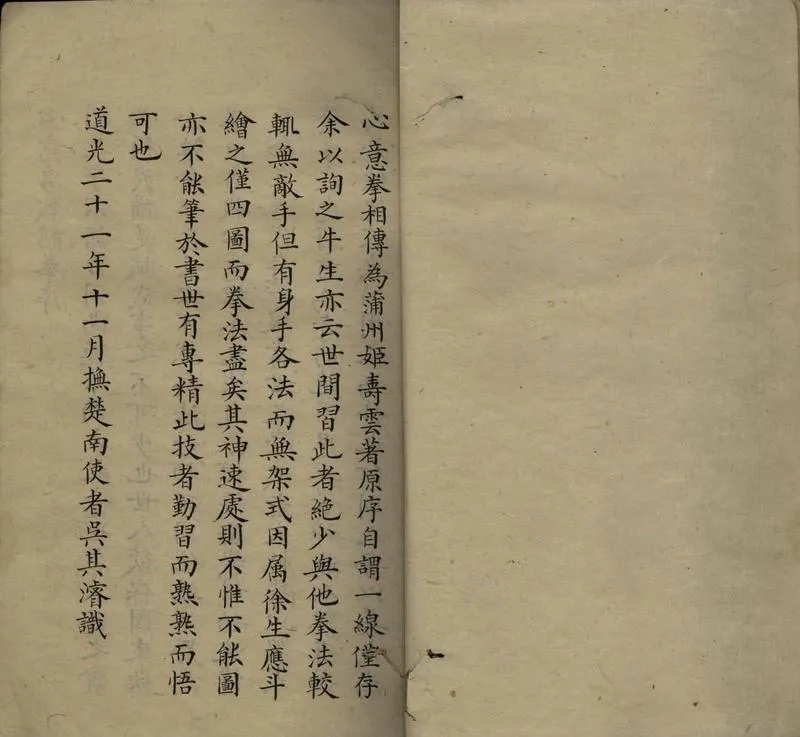 心意拳相傳為蒲州姬壽雲著原序自謂一線僅存
余以詢之牛生亦云世間習此者絕少與他拳法較
輒無敵手但有身手各法而無架式因属徐生應斗
繪之僅四圖而拳法盡矣其神速處則不惟不能圖
亦不能筆於書世有專精此技者勤習而熟熟而悟
可也
道光二十一年十一月撫楚南使者吳其濬識